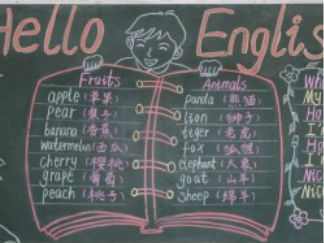 Hello Englis
Fruits
apple (苹果)
pear (梨子)
banana (香蕉)
watermelon (西瓜)
cherry (樱桃)
grape (葡萄)
peach (桃子)
Animals
panda (熊猫)
lion (狮子)
tiger (老虎)
fox (狐狸)
elephant (大象)
goat (山羊)
sheep (绵羊)
Wh
My
Ho
I'
Ho
I'
Nic
Nic